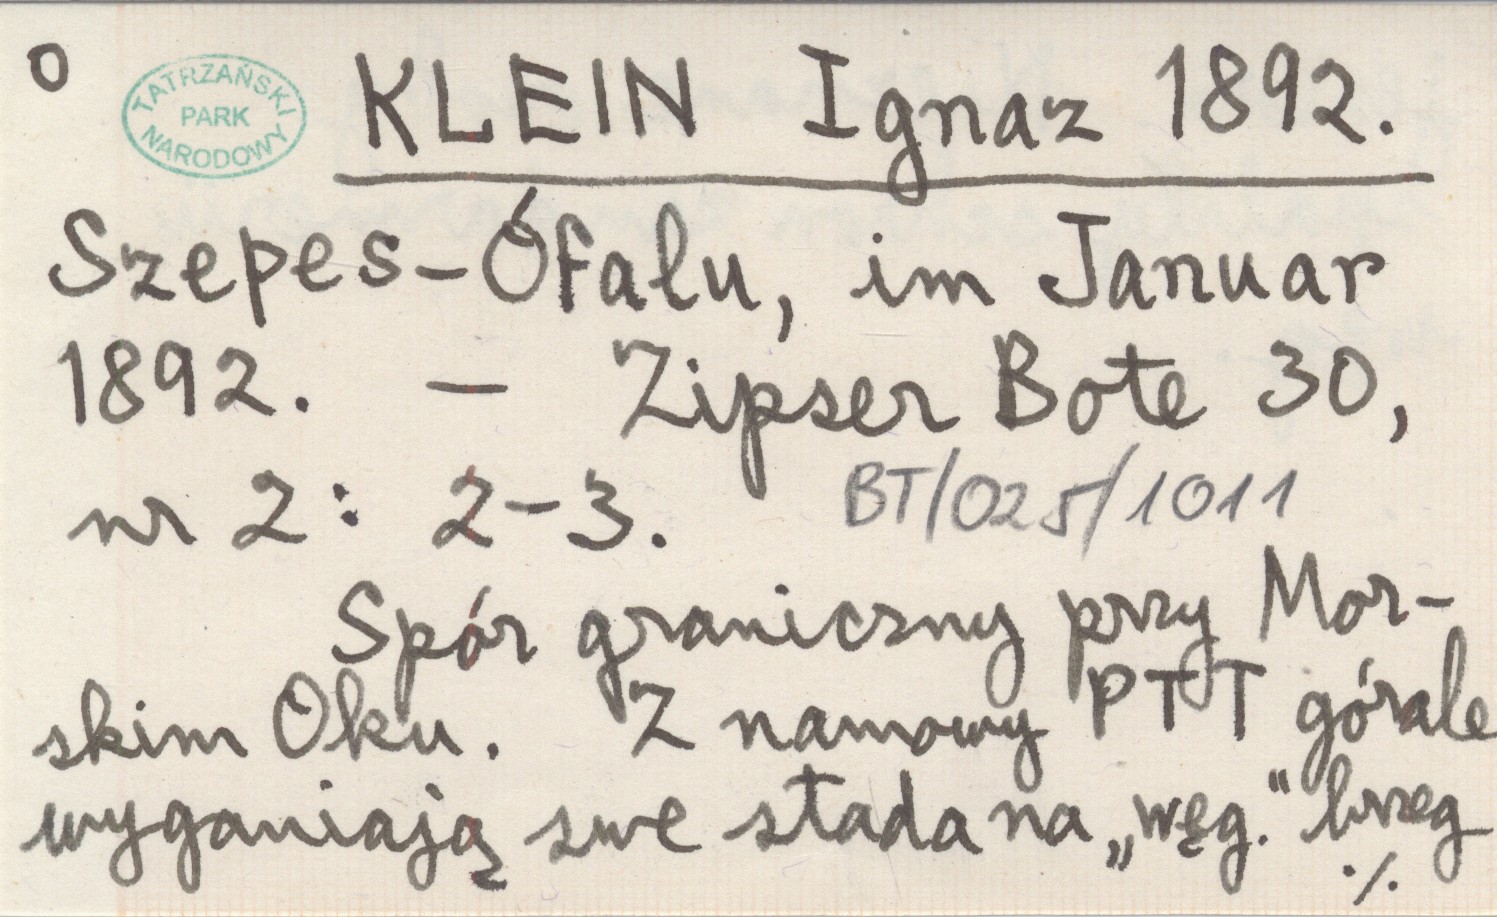 O
TATRZAŃSKI
PARK
NARODOWY
KLEIN Ignaz 1892.
Szepes-Ófalu, im Januar
1892. – Zipser Bote 30,
nr 2: 2-3.
BT/025/1011
Spór graniczny przy Mor-
skim Oku. Z namowy PTT górale
wyganiają swe stada na „węg.” brzeg
./.